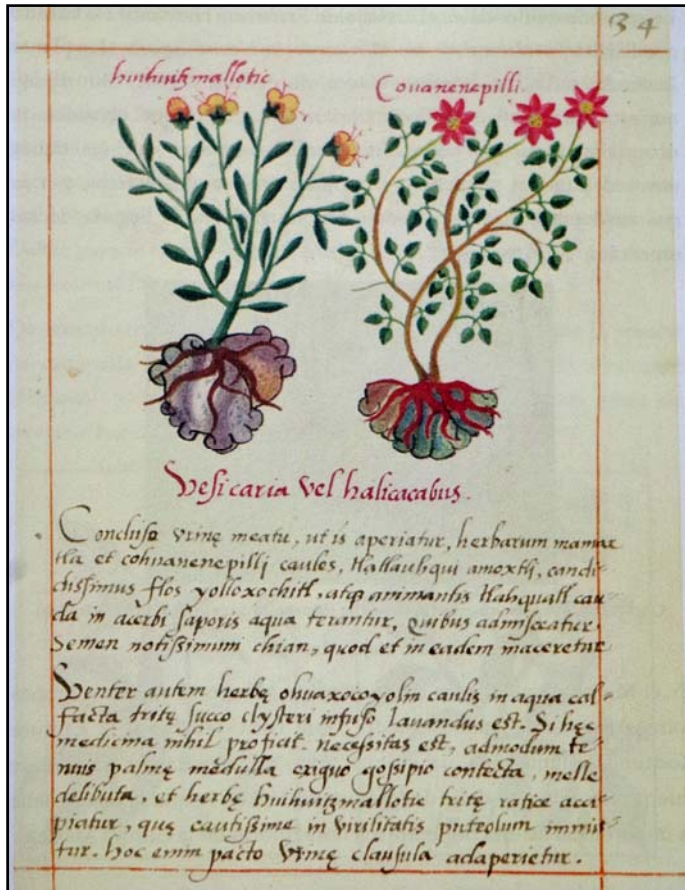 34
huihuitzmallotic
Couanenepilli
Vesicaria vel halicacabus.
Concluso vrinę meatu, ut is aperiatur, herbarum mamax⸗
tla et cohuanenepilli caules, tlallauhqui amoxtli, candi⸗
dissimus flos yolloxochitl, atq; animantis tlahquatl cau⸗
da in acerbi saporis aqua terantur, quibus admisceatur
Semen notissimum chian, quod et in eadem maceretur
Venter autem herbę ohuaxocoyolin caulis in aqua cal⸗
facta tritę succo clysteri infuso lavandus est. Si hęc
medicina nihil proficit. necessitas est, admodum te⸗
nuis palmę medulla exiguo gossipio contecta, melle
delibuta, et herbę huihuitzmallotic tritę radice acci⸗
piatur, quę cautissime in virilitatis puteolum immit⸗
tur. hoc enim pacto vrinę clausula adaperietur.